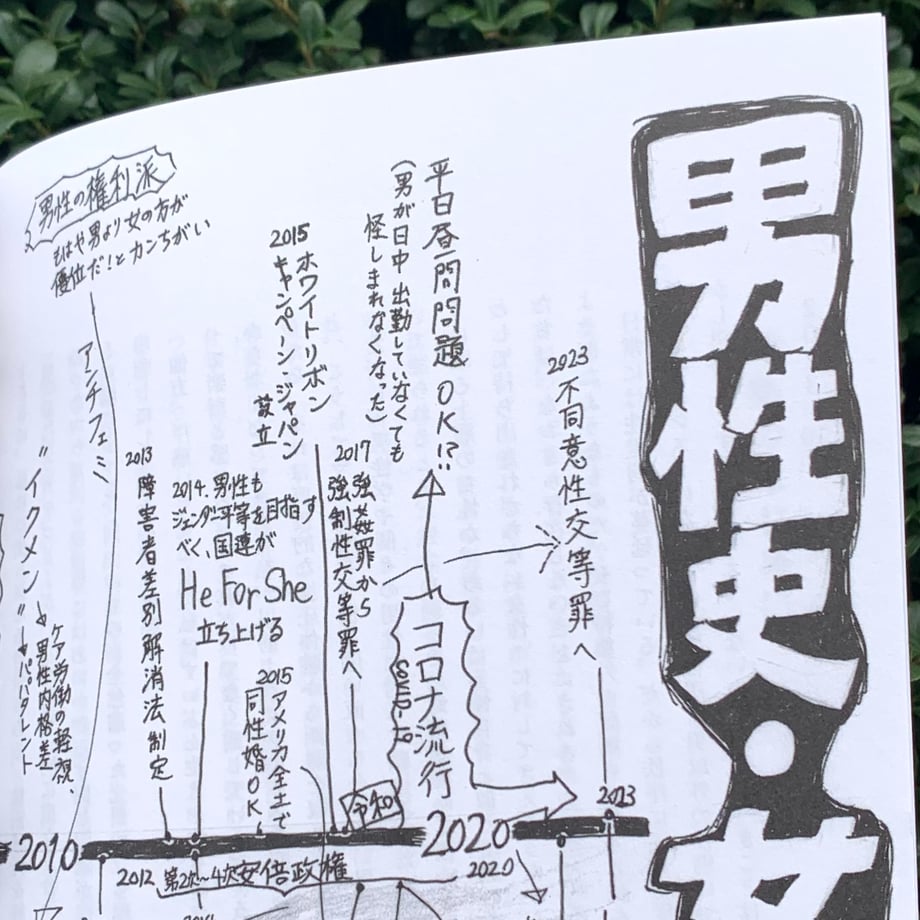 男性史・女
平日昼間問題OK!?
(男が日中出勤していなくても
怪しまれなくなった)
2023 不同意性交等罪へ
コロナ流行
2017 強姦罪から
強制性交等罪へ
2015 ホワイトリボン
キャンペーン・ジャパン
設立
2014. 男性も
ジェンダー平等を目指す
べく、国連が
He For She
立ち上げる
2015 アメリカ全土で
同性婚OK
2013 障害者差別解消法制定
男性の権利派
もはや男より女の方が
優位だ!とカンちがい
アンチフェミ
"イクメン"→パパタレント
ケア労働の軽視、
男性内格差
令和
2010
2020
2023
2012 第2次〜4次安倍政権
2020